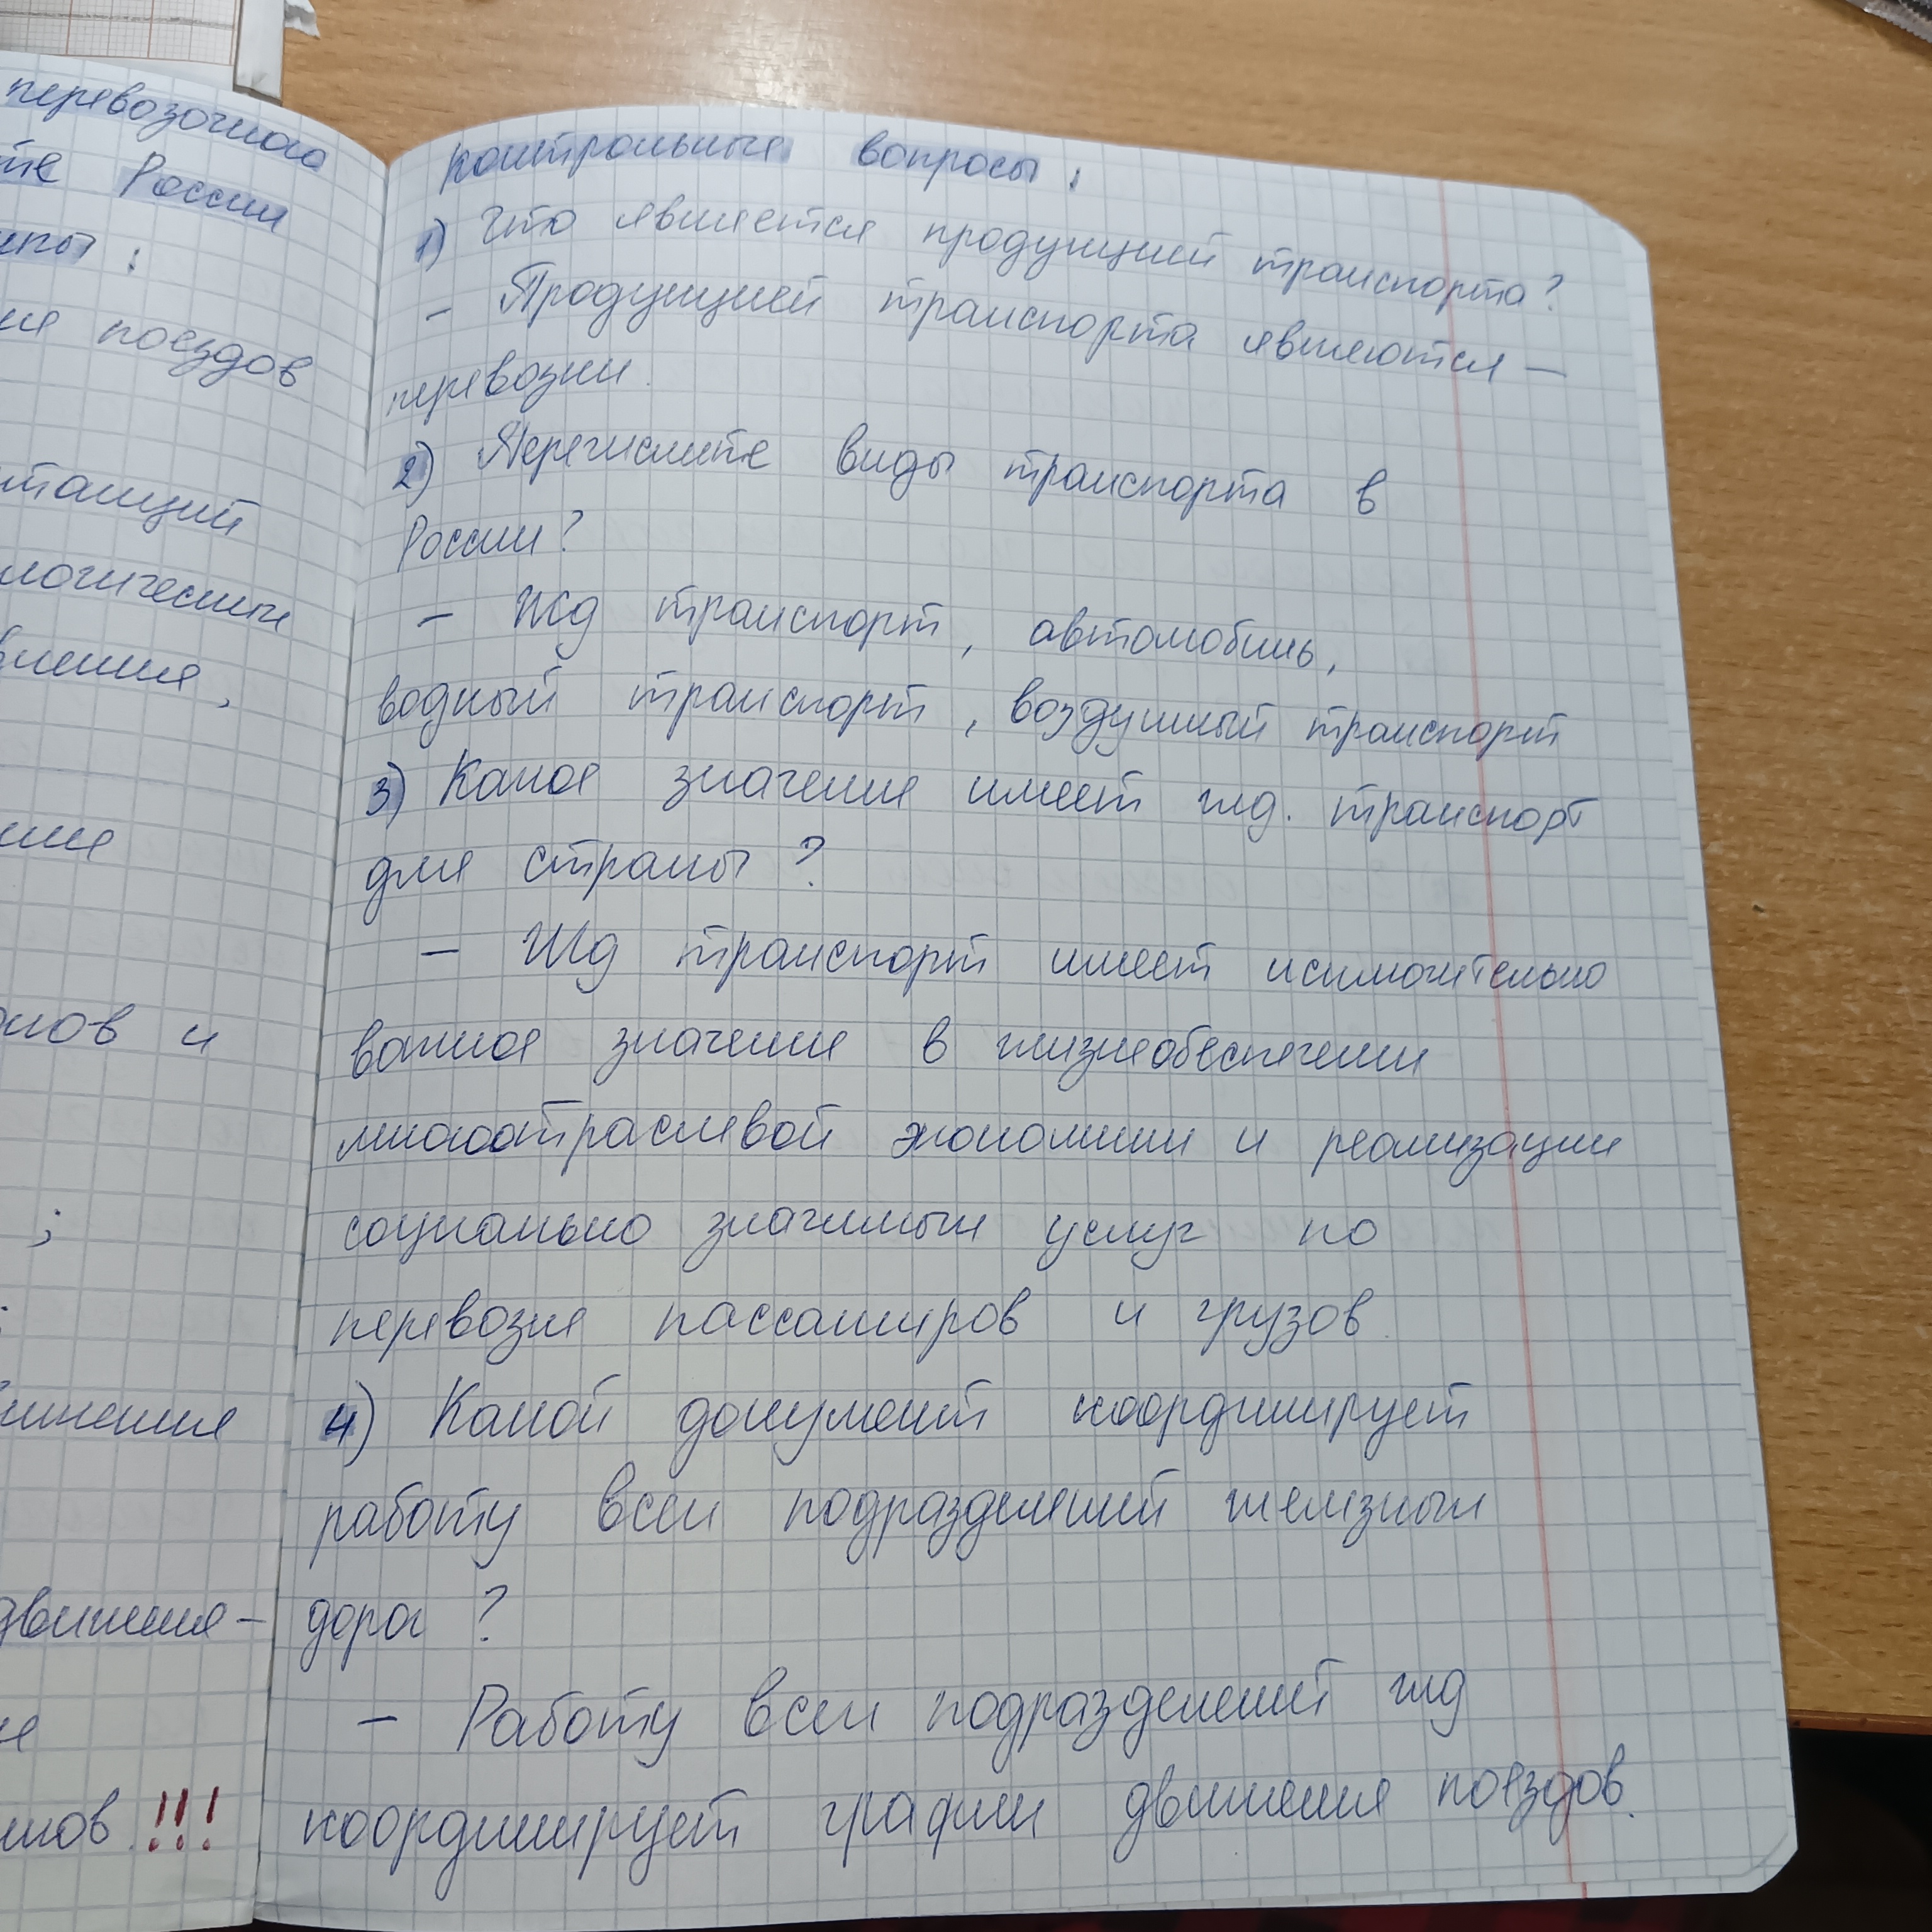 перевозочного
России
поездов
и
!!!
контрольные вопросы:
1) Что является продукцией транспорта?
- Продукцией транспорта являются -
перевозки.
2) Перечислите виды транспорта в
России?
- ЖД транспорт, автомобиль,
водный транспорт, воздушный транспорт
3) Какое значение имеет жд. транспорт
для страны?
- ЖД транспорт имеет исключительно
важное значение в жизнеобеспечении
многоотраслевой экономики и реализации
социально значимых услуг по
перевозке пассажиров и грузов.
4) Какой документ координирует
работу всех подразделений железных
дорог?
- Работу всех подразделений жд
координирует график движения поездов.